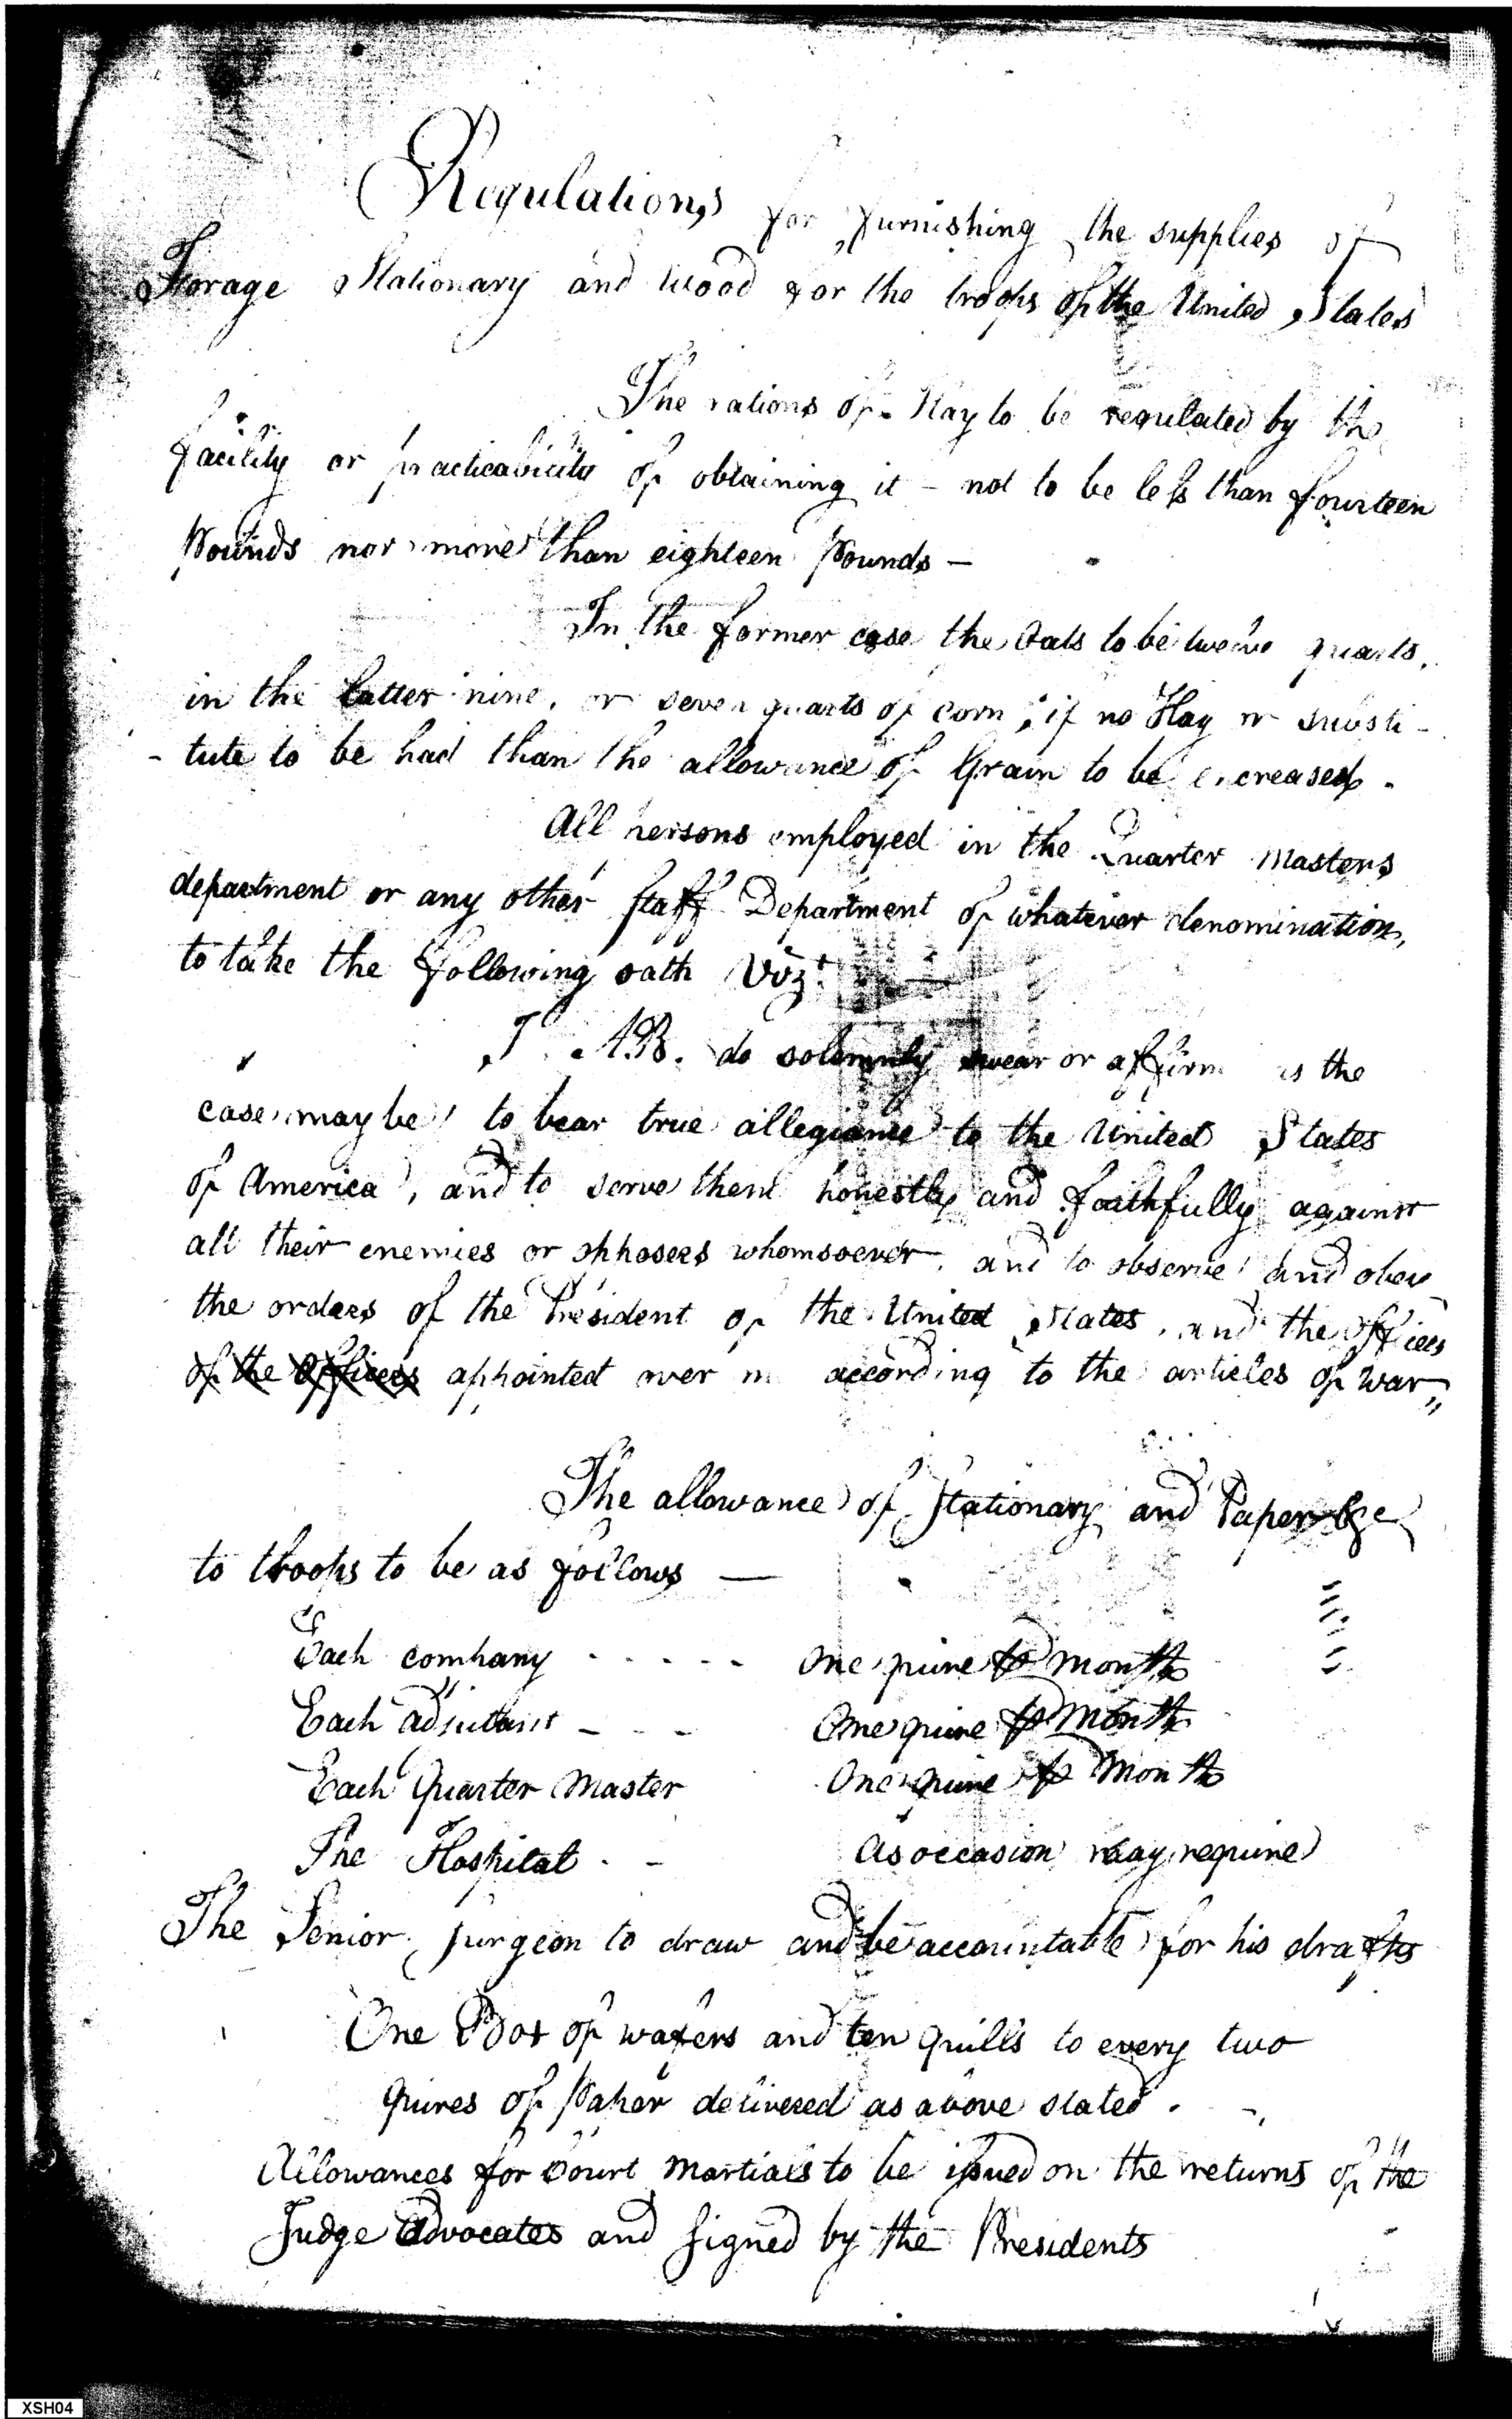 Regulations for furnishing the supplies of
Forage Stationary and Wood for the troops of the United States
The rations of Hay to be regulated by the
facility or practicability of obtaining it – not to be less than fourteen
Pounds nor more than eighteen Pounds –
In the former case the Oats to be twelve quarts,
in the latter nine, or seven quarts of corn; if no Hay or substi-
-tute to be had than the allowance of Grain to be encreased.
All persons employed in the Quarter Masters
department or any other staff Department of whatever denomination,
to take the following oath Viz.t
I A.B. do solemnly swear or affirm as the
case may be to bear true allegiance to the United States
of America, and to serve them honestly and faithfully against
all their enemies or opposers whomsoever, and to observe and obey
the orders of the President of the United States, and the officers
of the Officers appointed over me according to the articles of War„
The allowance of Stationary and Paper
to troops to be as follows —
Each company - - - - - One quire ⅌ month
Each adjutant - - - One quire ⅌ month
Each Quarter Master One quire ⅌ Month
The Hospital - - As occasion may require
The Senior Surgeon to draw and be accountable for his drafts
One Box of wafers and ten quills to every two
Quires of Paper delivered as above stated. -
Allowances for Court Martials to be issued on the returns of the
Judge Advocates and signed by the Presidents
XSH04